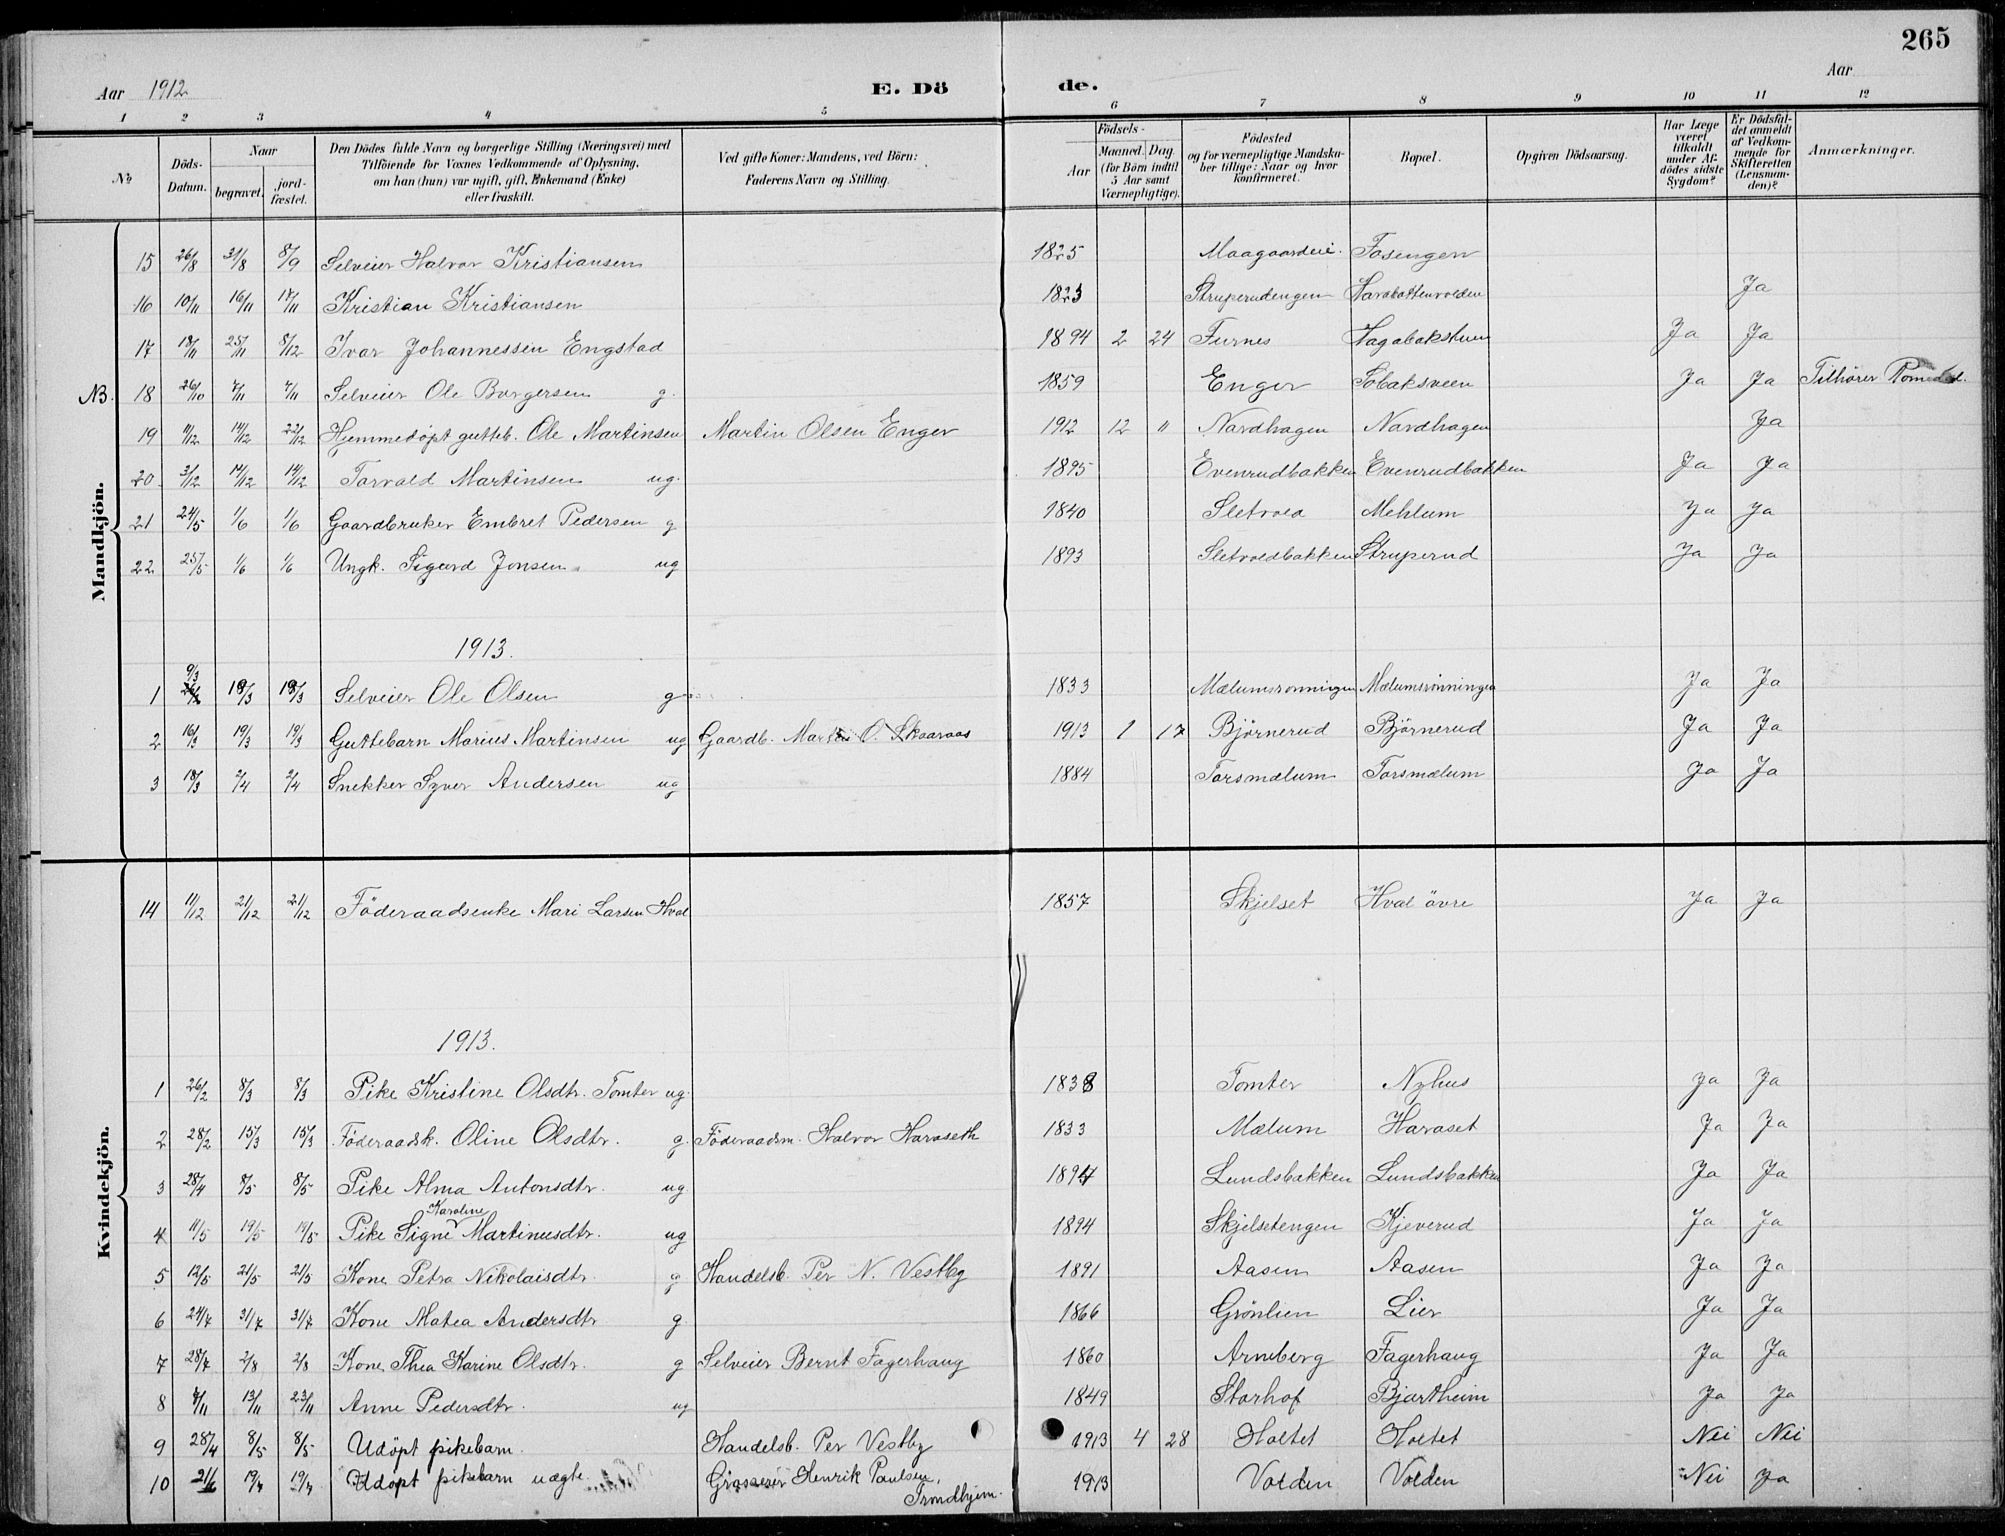 265
Aar 1912
E. Dö
de.
Aar
1 2 3 4 5 6 7 8 9 10 11 12
No
Döds-Datum.
Naar
begravet.
jord-fæstet.
Den Dödes fulde Navn og borgerlige Stilling (Næringsvei) med
Tilföiende for Voxnes Vedkommende af Oplysning,
om han (hun) var ugift, gift, Enkemand (Enke)
eller fraskilt.
Ved gifte Koner: Mandens, ved Börn:
Faderens Navn og Stilling.
Födsels-
Aar
Maaned. Dag
(for Börn indtil
5 Aar samt
Værnepligtige).
Födested
og for værnepligtige Mandska-
ber tillige: Naar og hvor
konfirmeret.
Bopæl.
Opgiven Dödsaarsag.
Har Læge
været
tilkaldt
under Af-
dödes sidste
Sygdom?
Er Dödsfal-
det anmeldt
af Vedkom-
mende for
Skifteretten
(Lensman-
den)?
Anmærkninger.
Mandkjön.
15 26/8 31/8 8/9 Selveier Halvor Kristiansen 1825 Maagaardeie. Fosengen
16 10/11 16/11 17/11 Kristian Kristiansen 1823 Struperudengen Ja
17 18/11 25/11 8/12 Ivar Johannessen Engstad 1894 2 24 Furnes Hagabakstuen Ja Ja
NB. 18 26/10 4/11 4/11 Selveier Ole Borgersen g. 1859 Enger Sobaksveen Ja Ja Tilhører Romedal.
19 11/12 14/12 22/12 Hjemmedøpt gutteb. Ole Martinsen Martin Olsen Enger 1912 12 " Nordhagen Nordhagen Ja
20 3/12 14/12 14/12 Torvald Martinsen ug. 1895 Evenrudbakken Evenrudbakken Ja Ja
21 24/5 1/6 1/6 Gaardbruker Embret Pedersen g 1840 Sletvold Mehlum Ja Ja
22 25/5 1/6 1/6 Ungk. Sigurd Jonsen ug 1893 Sletvoldbakken Struperud Ja Ja
1913.
9/3
1 18/3 18/3 Selveier Ole Olsen g 1833 Mælumsrønningen Mælumsrønningen Ja Ja
2 16/3 19/3 19/3 Guttebarn Marius Martinsen ug Gaardb. Martin O. Skaaraas 1913 1 17 Bjørnerud Bjørnerud Ja Ja
3 18/3 2/4 2/4 Snekker Syver Andersen ug 1884 Torsmælum Torsmælum Ja Ja
Kvindekjön.
14 11/12 21/12 21/12 Føderaadsenke Mari Larsen Hval 1857 Skjelset Hval øvre Ja Ja
1913.
1 26/2 8/3 8/3 Pike Kristine Olsdtr. Tomter ug. 1838 Tomter Nyhus Ja Ja
2 28/2 15/3 15/3 Føderaadsk. Oline Olsdtr. g. Føderaadsm. Halvor Haraseth 1833 Mælum Haraset Ja Ja
3 28/4 8/5 8/5 Pike Alma Antonsdtr. ug. Lundsbakken Lundsbakken Ja Ja
Karoline
4 11/5 19/5 19/5 Pike Signe Martinusdtr. ug 1894 Skjelsetengen Kjeverud Ja Ja
5 12/5 21/5 21/5 Kone Petra Nikolaisdtr. g Handelsb. Per N. Vestby 1891 Aasen Aasen Ja Ja
6 24/7 31/7 31/7 Kone Matea Andersdtr g. 1866 Grønlien Lier Ja Ja
7 28/7 2/8 2/8 Kone Thea Karine Olsdtr. g Selveier Bernt Fagerhaug 1860 Arneberg Fagerhaug Ja Ja
8 13/11 23/11 Anne Pedersdtr. ug 1849 Storhof Bjartheim Ja Ja
9 28/4 8/5 8/5 Udøpt pikebarn. Handelsb. Per Vestby 1913 4 28 Holtet Holtet Nei Nei
10 21/6 19/7 19/7 Udøpt pikebarn uægte. Grosserer Henrik Paulsen, 1913 Volden Volden Nei Ja
Trondhjem.